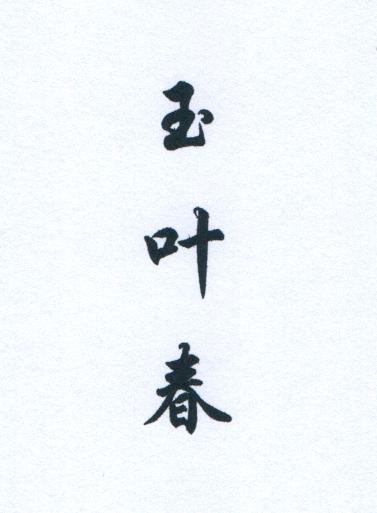 玉叶春